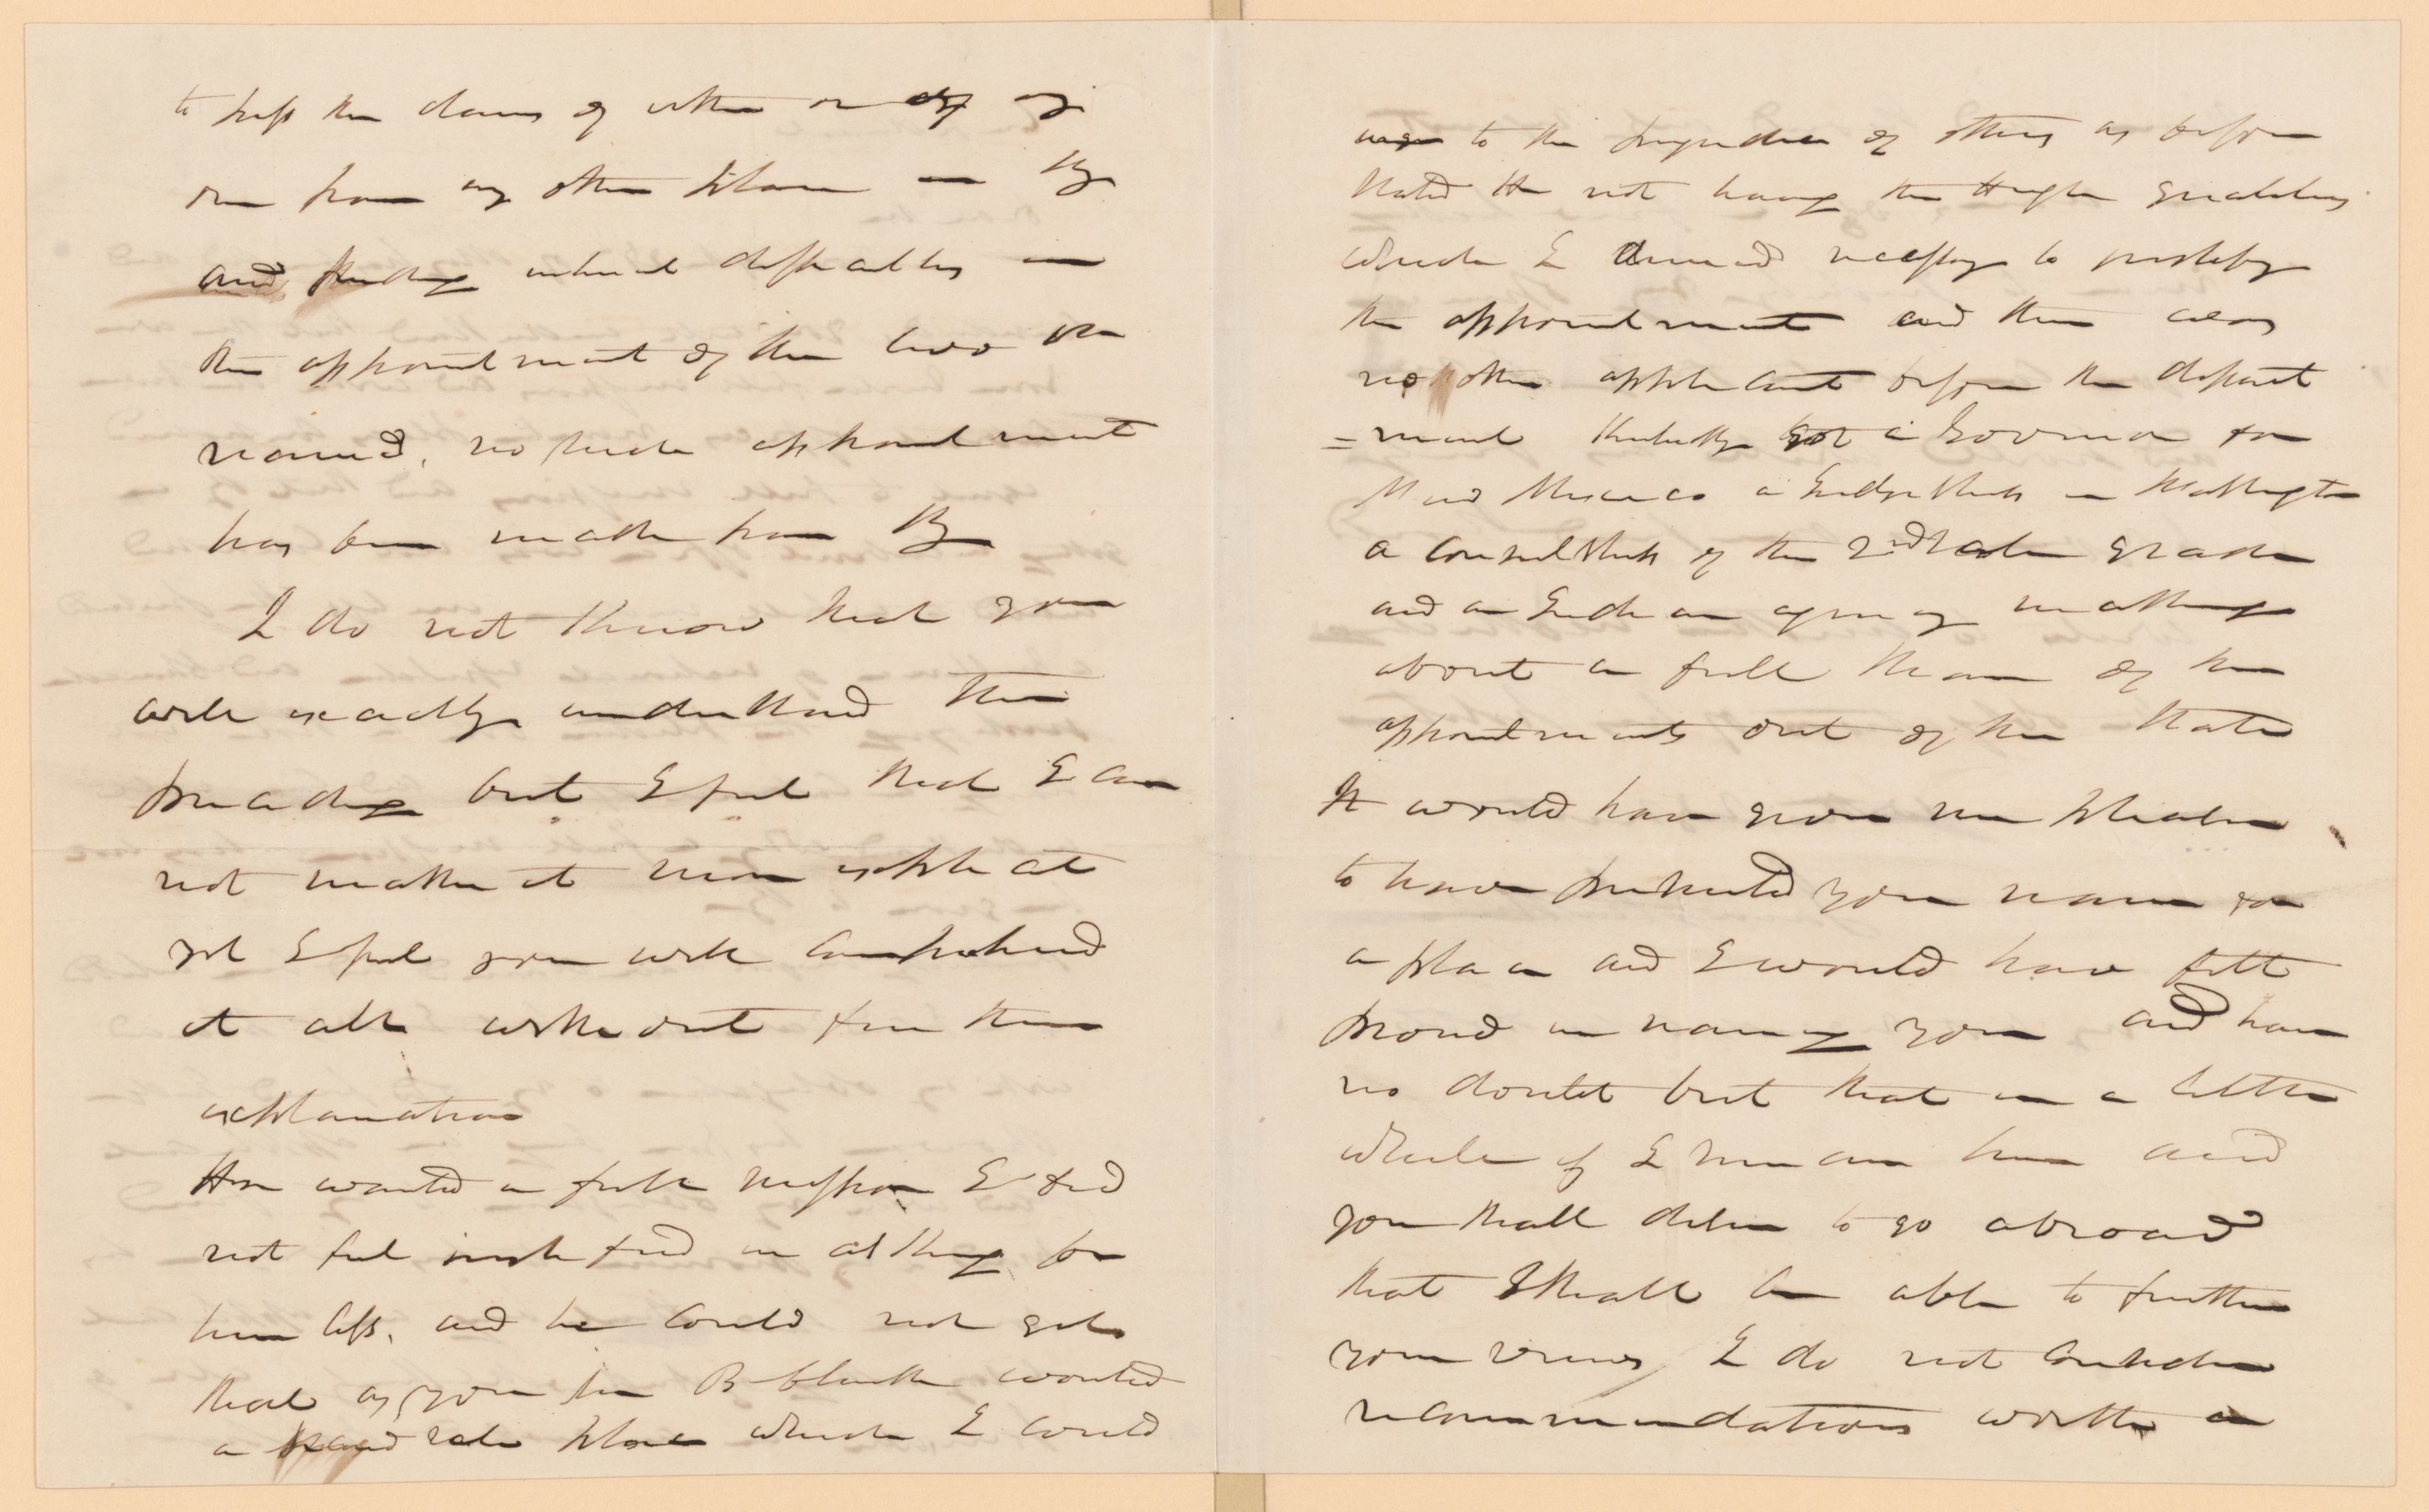 to press the claims of either or of any
one from any other place in Ky
and finding inherent difficulties in
the appointment of the two
named, no such appointment
has been made from Ky
I do not know that you
will exactly understand this
preceding but I feel that I can
not make it more explicit
yet I feel you will comprehend
it all without further
explanation
He wanted a full mission I did
not feel justified in asking for
him less, and he could not get
that as you see B wanted
a rate place which I could
to the prejudice of others as before
stated He not having the high qualities
which I deemed necessary to justify
the appointment and there was
no other applicant before the depart
=ment Kentucky got a Governor for
New Mexico a Judgeship in Washington
a consulship of the 2nd rate grade
and an Indian agency making
about a full share of the
appointments out of the State
It would have given me pleasure
to have presented your name for
a place and I would have felt
proud in naming you and have
no doubt but that in a little
while if I remain here and
you shall desire to go abroad
that I shall be able to further
your views, I do not consider
recommendations worth a